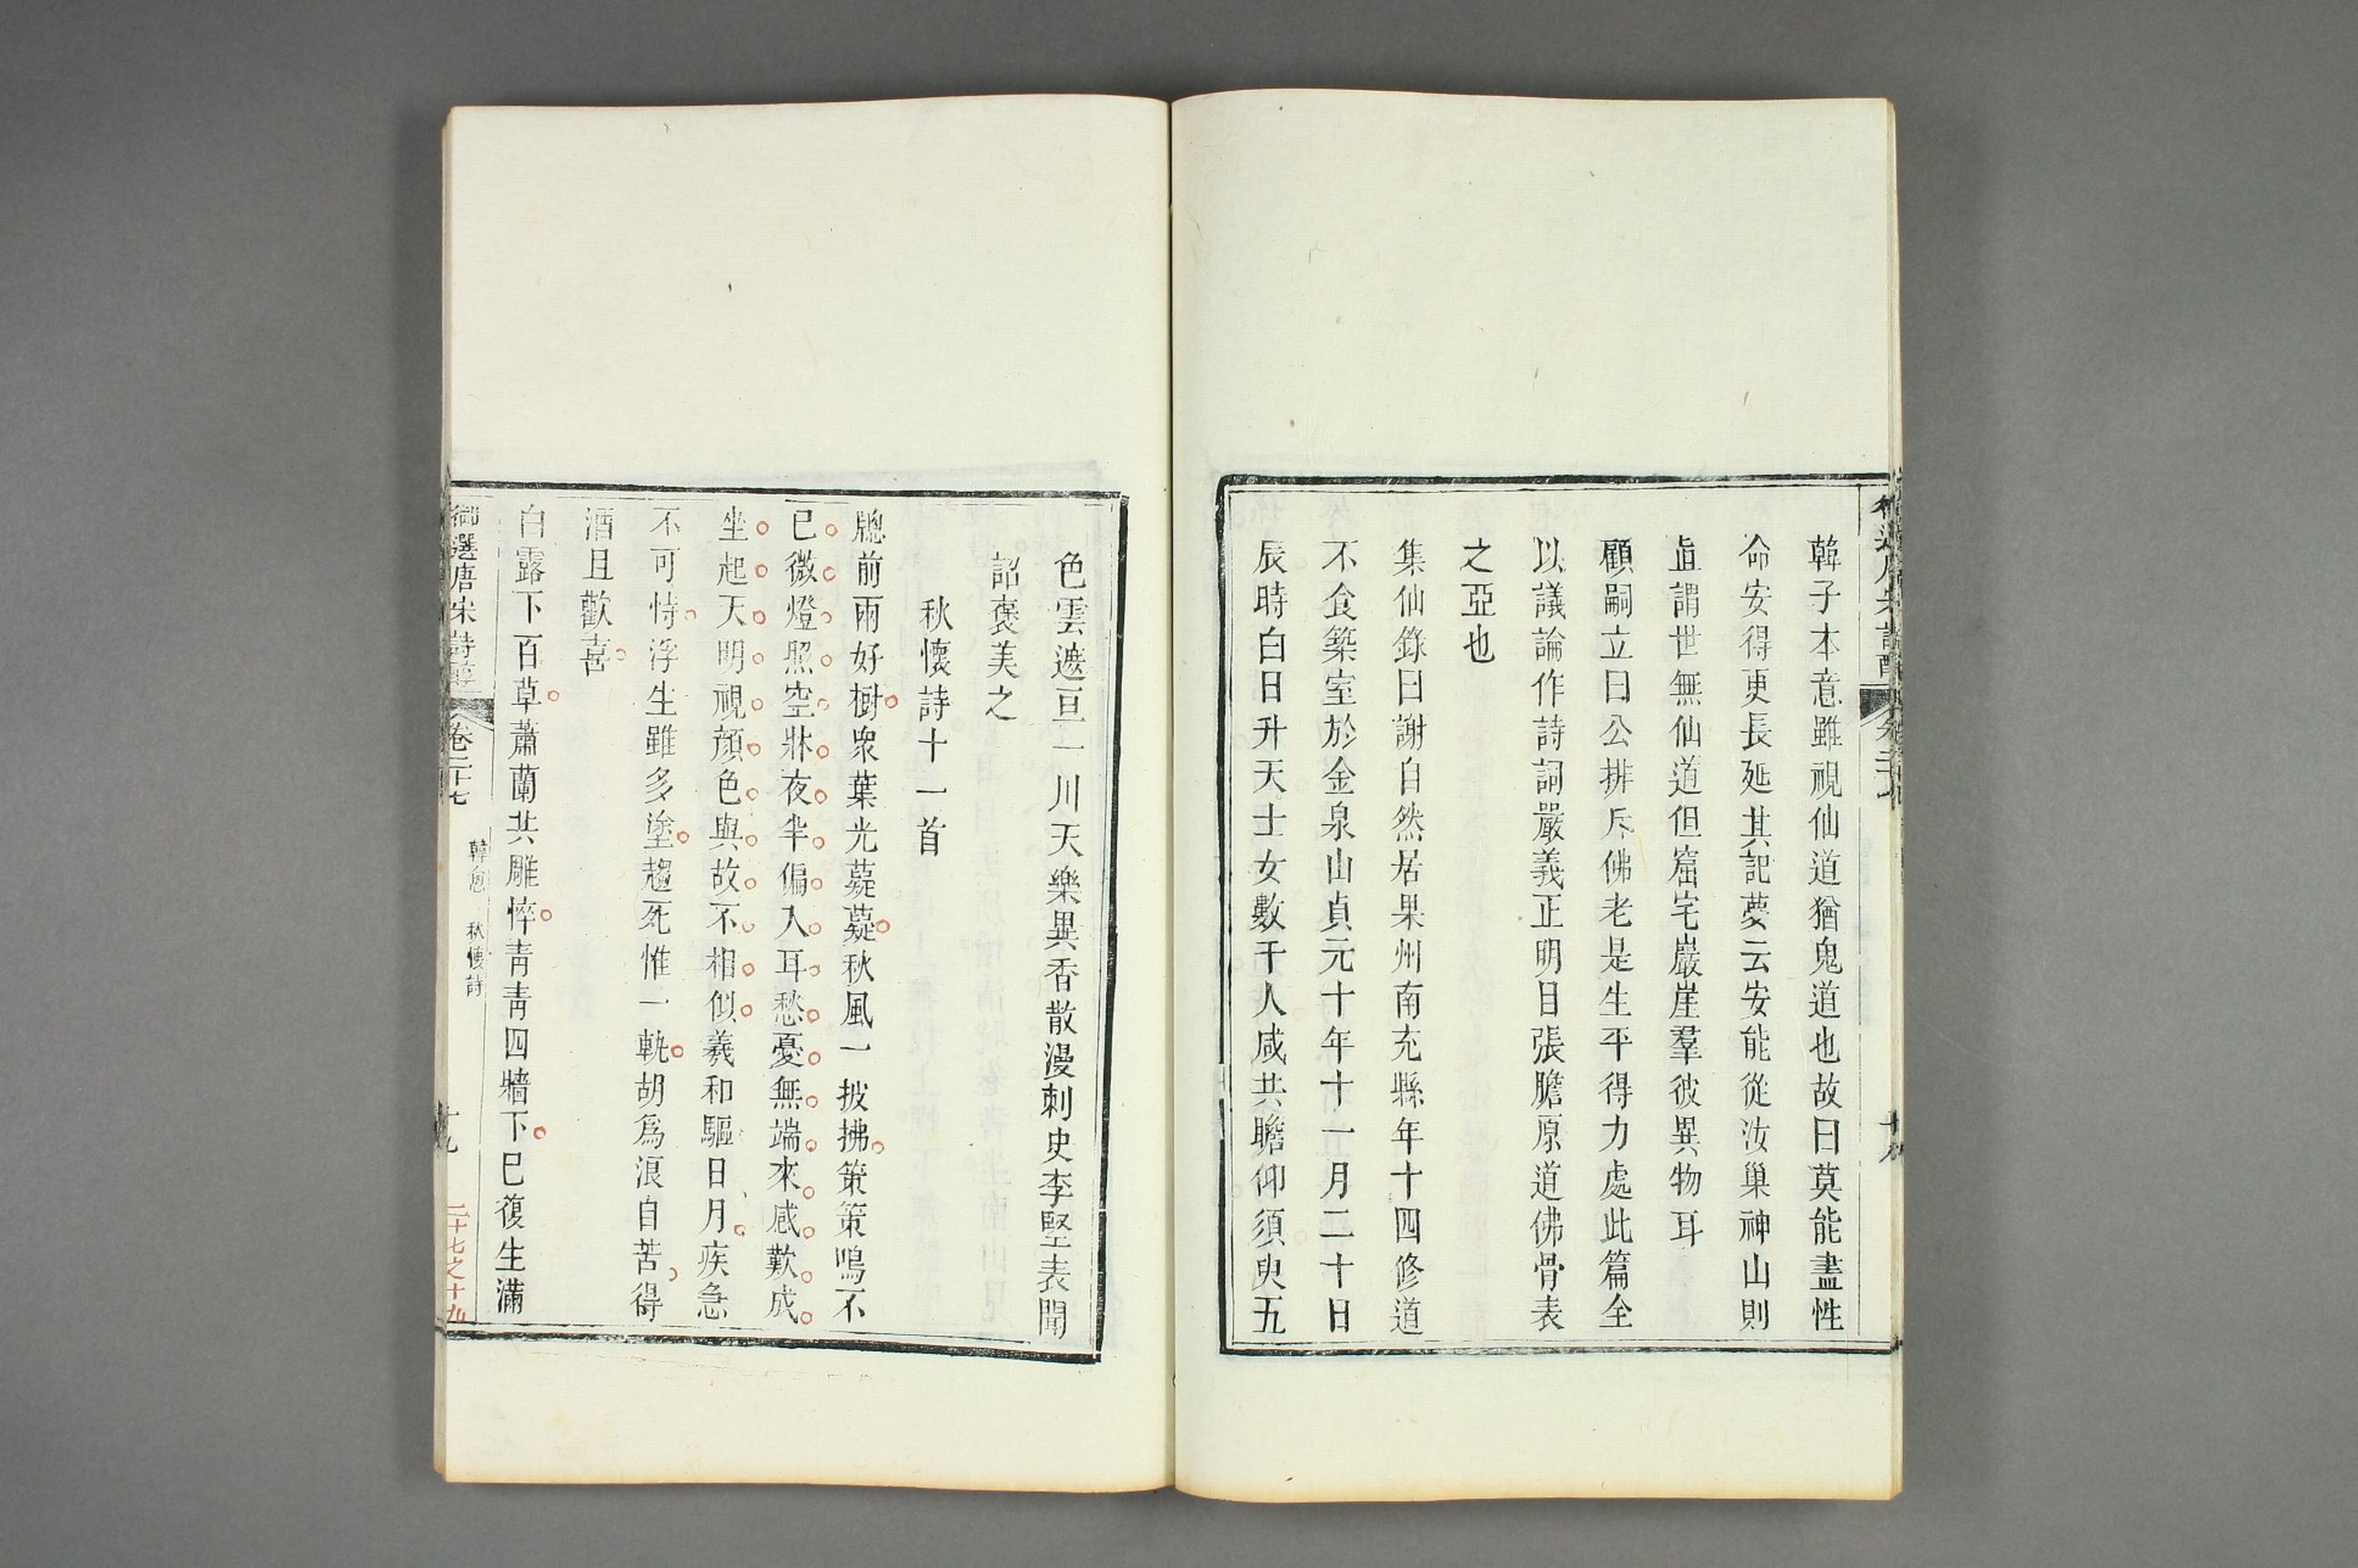 韓子本意雖視仙道猶鬼道也故曰莫能盡性
命安得更長延其記夢云安能從汝巢神山則
直謂世無仙道但窟宅巖崖羣彼異物耳
顧嗣立曰公排斥佛老是生平得力處此篇全
以議論作詩詞嚴義正明目張膽原道佛骨表
之亞也
集仙錄曰謝自然居果州南充縣年十四修道
不食築室於金泉山貞元十年十一月二十日
辰時白日升天士女數千人咸共瞻仰須臾五
色雲遮亘一川天樂異香散漫刺史李堅表聞
詔褒美之
秋懷詩十一首
牕前兩好樹衆葉光薿薿秋風一披拂策策鳴不
已微燈照空牀夜半偏入耳愁憂無端來感歎成
坐起天明視顔色與故不相似羲和驅日月疾急
不可恃浮生雖多塗趨死惟一軌胡爲浪自苦得
酒且歡喜
白露下百草蕭蘭共雕悴靑靑四牆下已復生滿
御選唐宋詩醇
卷二十七
韓愈 秋懷詩
十九
二十七之十九